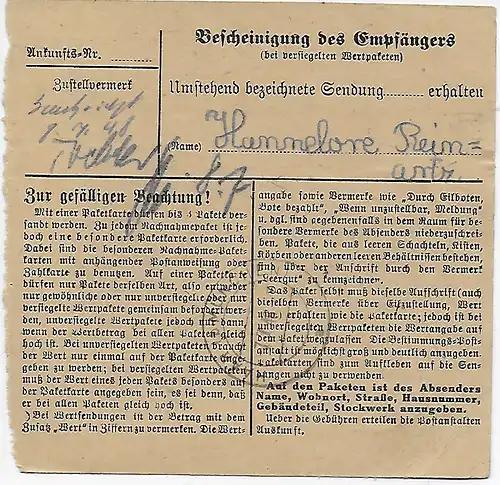 Ankunfts-Nr. ............
Zustellvermerk
Bescheinigung des Empfängers
(bei versiegelten Wertpaketen)
Umstehend bezeichnete Sendung............ erhalten
(Name) Hannelore Rein=
artz
Zur gefälligen Beachtung!
Mit einer Paketkarte dürfen bis 3 Pakete ver-
sandt werden. Zu jedem Nachnahmepaket ist je-
doch eine besondere Paketkarte erforderlich.
Dabei sind die besonderen Nachnahme-Paket-
karten mit anhängender Postanweisung oder
Zahlkarte zu benutzen. Auf einer Paketkarte
dürfen nur Pakete derselben Art, also entweder
nur gewöhnliche oder nur unversiegelte oder nur
versiegelte Wertpakete gemeinsam befördert wer-
den, unversiegelte Wertpakete jedoch nur dann,
wenn der Wertbetrag bei allen Paketen gleich
hoch ist. Bei unversiegelten Wertpaketen braucht
der Wert nur einmal auf der Paketkarte ange-
geben zu werden; bei versiegelten Wertpaketen
muß der Wert eines jeden Pakets besonders auf
der Paketkarte angegeben sein, es sei denn, daß
er bei allen Paketen gleich hoch ist.
Bei Wertsendungen ist der Betrag mit dem
Zusatz „Wert" in Ziffern zu vermerken. Die Wert-
angabe sowie Vermerke wie „Durch Eilboten,
Bote bezahlt", „Wenn unzustellbar, Meldung"
u. dgl. sind gegebenenfalls in dem Raum für be-
sondere Vermerke des Absenders niederzuschrei-
ben. Pakete, die aus leeren Schachteln, Kisten,
Körben oder anderen leeren Behältnissen bestehen,
sind über der Anschrift durch den Vermerk
„Leergut" zu kennzeichnen.
Das Paket selbst muß dieselbe Aufschrift (auch
dieselben Vermerke über Eilzustellung, Wert
usw.) erhalten wie die Paketkarte; jedoch ist bei
unversiegelten Wertpaketen die Wertangabe auf
dem Paket wegzulassen. Die Bestimmungs-Post-
anstalt ist möglichst groß und deutlich anzugeben.
Paketkarten sind zum Aufkleben auf die Sen-
dungen nicht zu verwenden.
Auf den Paketen ist des Absenders
Name, Wohnort, Straße, Hausnummer,
Gebäudeteil, Stockwerk anzugeben.
Ueber die Gebühren erteilen die Postanstalten
Auskunft.